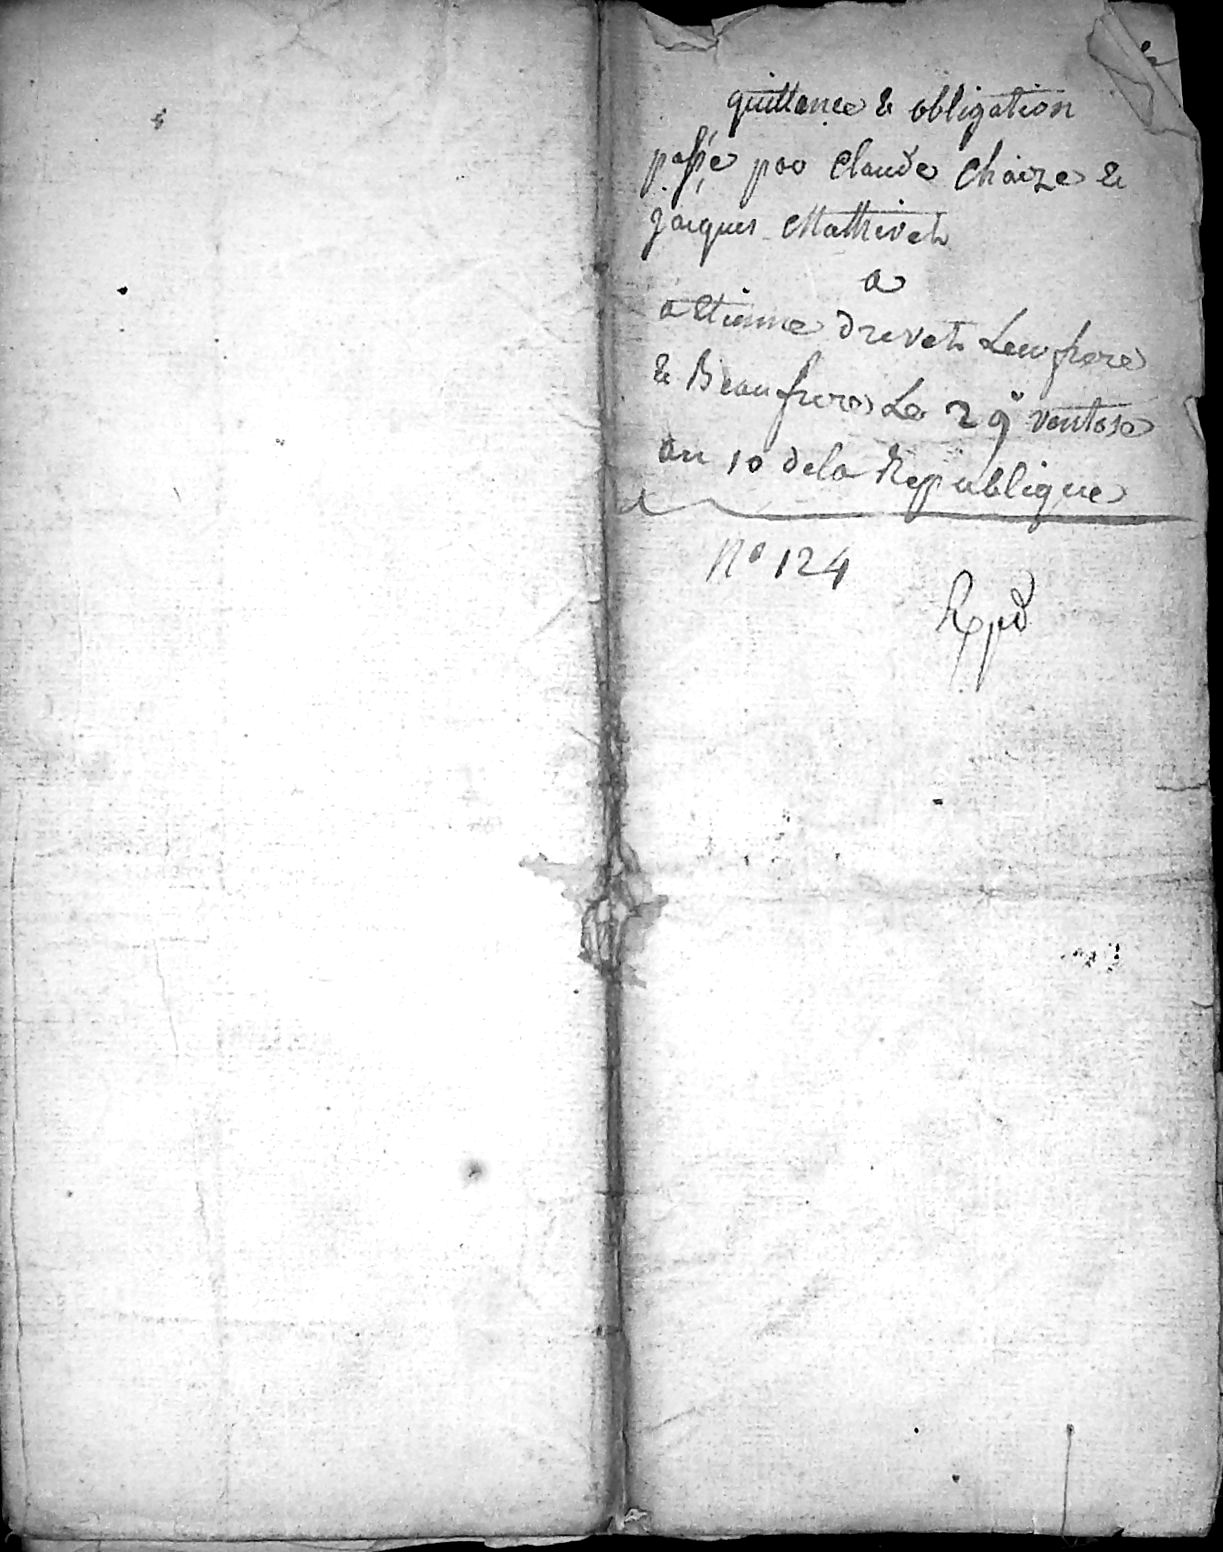 quittance & obligation
passé par Claude Chaize &
jacques Mathivet
a
a Etienne Drevet Leur frere
& Beaufrere Le 29e ventose
an 10 de la Republique
No 124